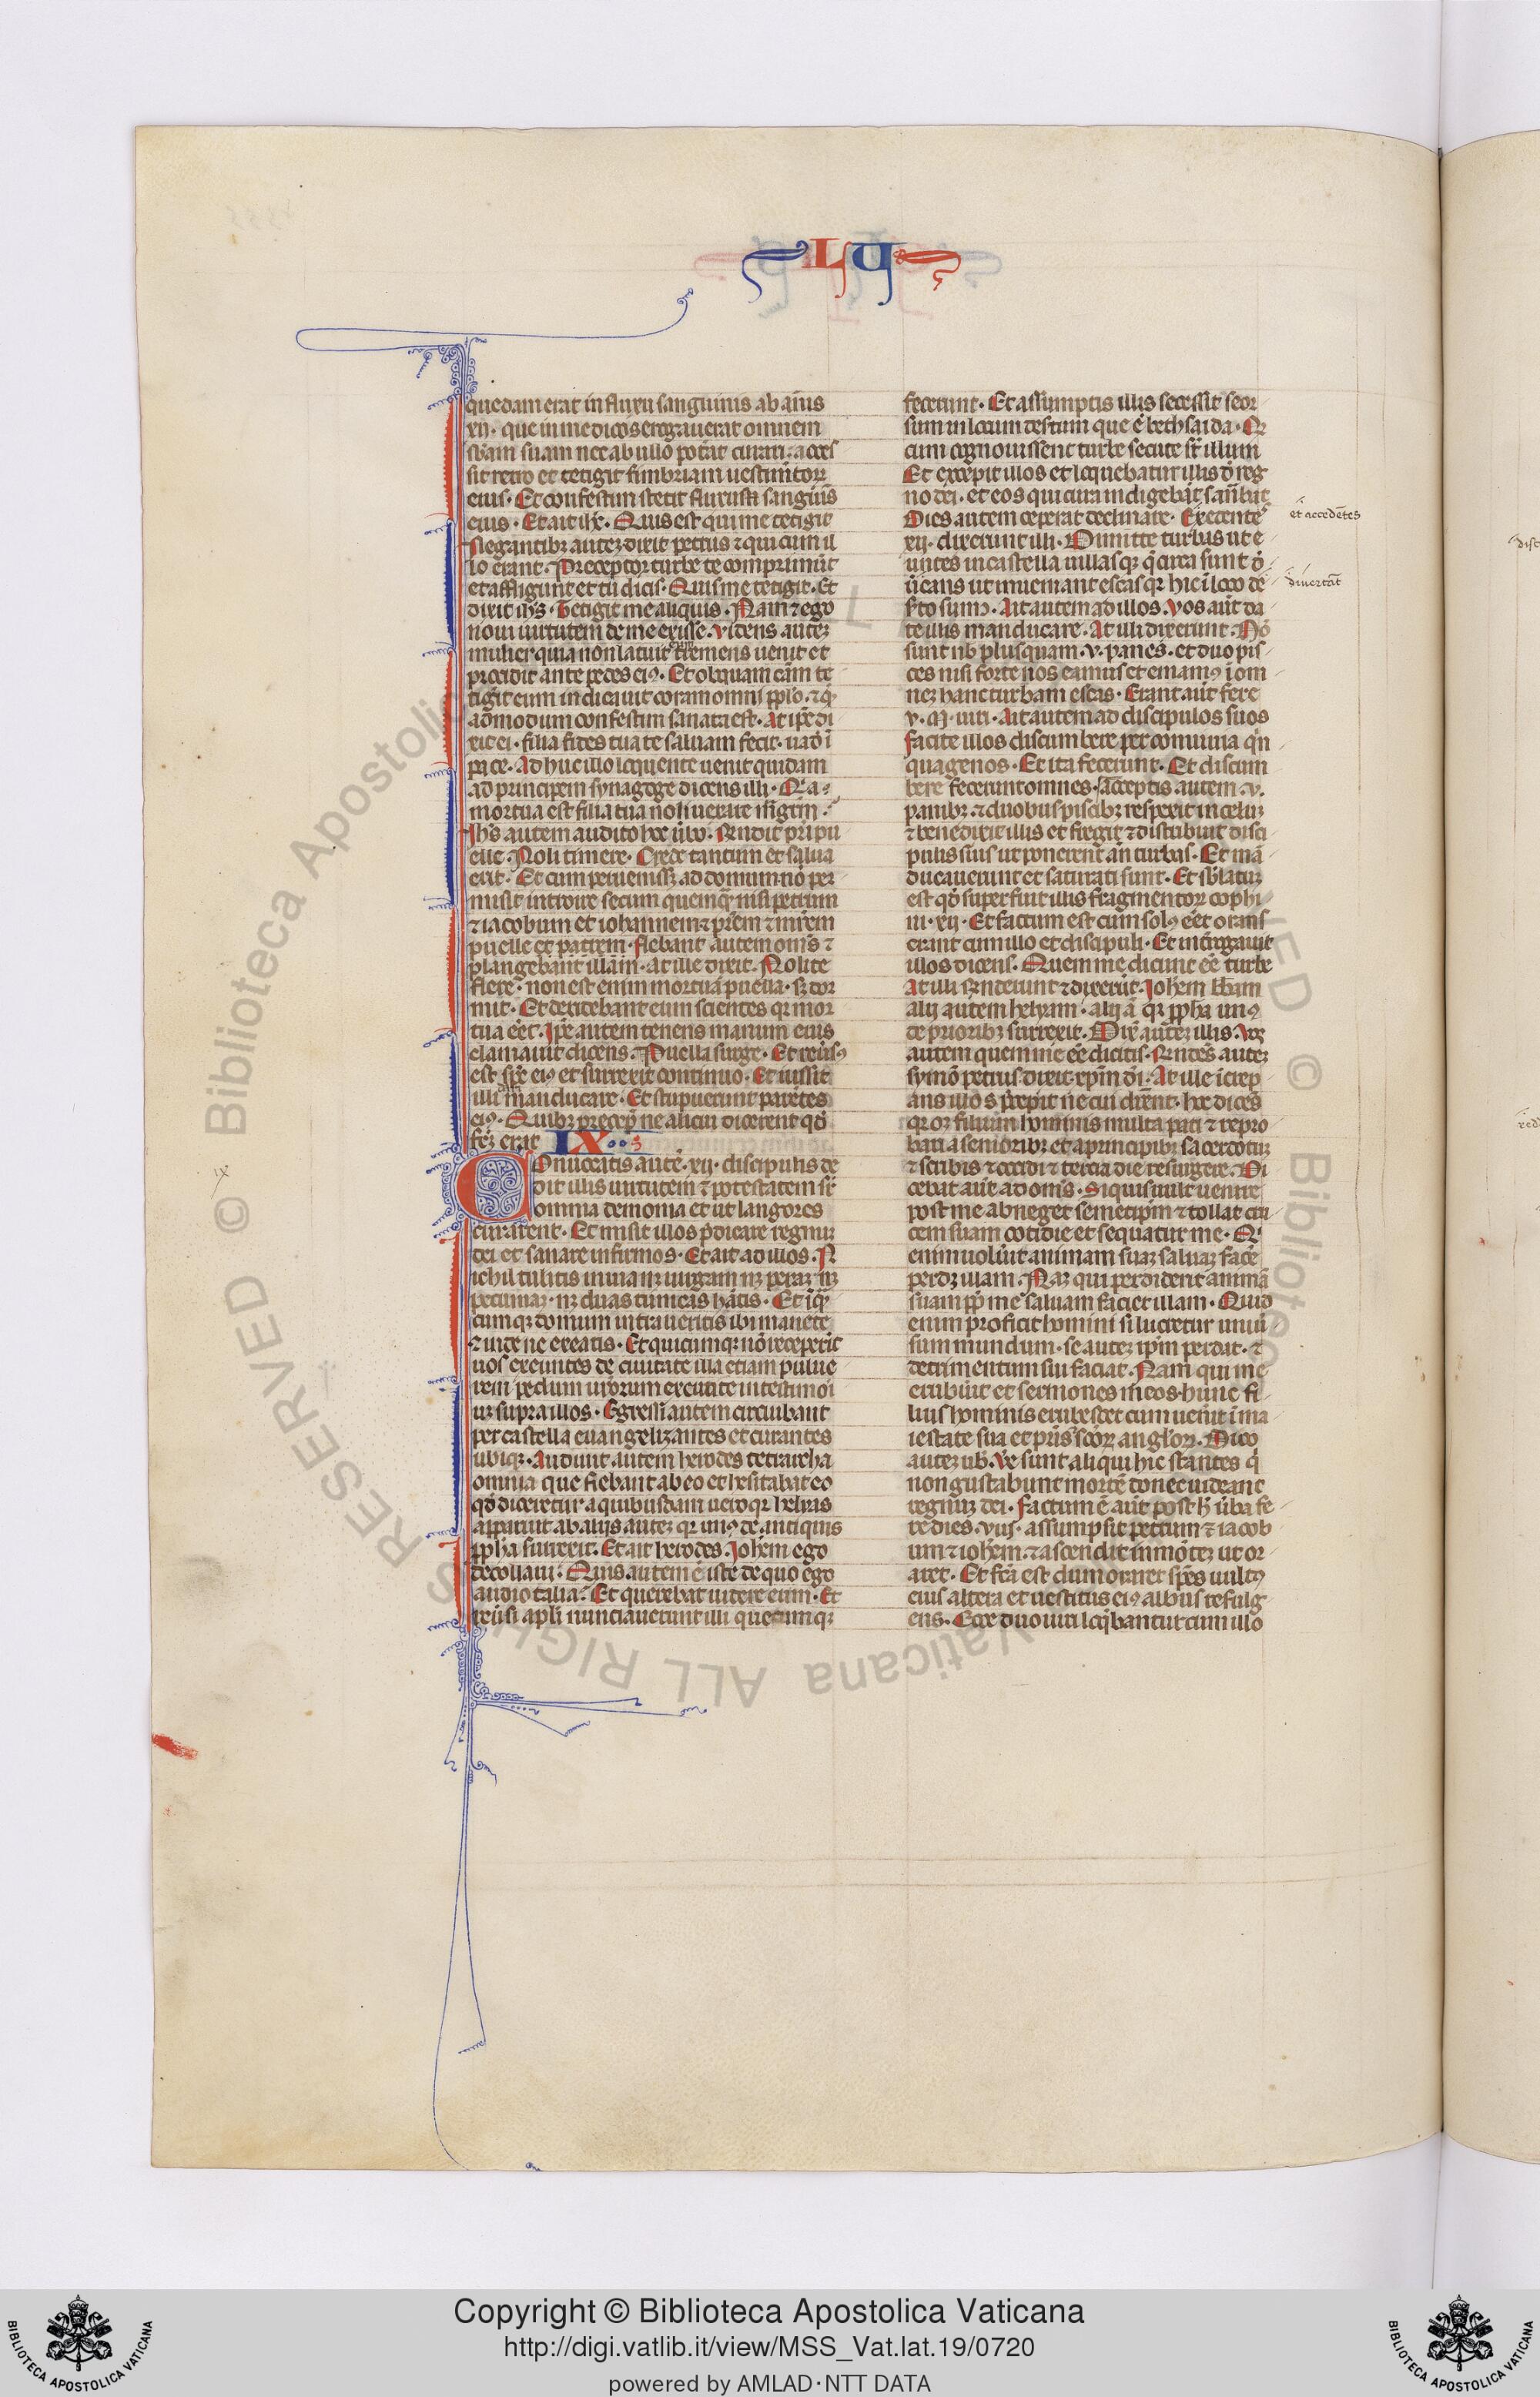 LU
quedam erat in fluxu sanguinis ab ānis
xij· que in medicos erogauerat omnem
sbām suam nec ab ullo potāt curari· acces
sit retro et tetigit fimbriam uestimtorꝝ
eius· Et confestim stetit fluxus sanguīs
eius· Et ait ihc̄· Quis est qui me tetigit
Negantibꝫ autez dixit petrus ⁊ qui cum il
lo erant· Preceptor turbe te comprimūt
et affligunt et tu dicis· Quis me tetigit· Et
dixit ihs̄· Tetigit me aliquis· Nam ⁊ ego
noui uirtutem de me exisse· Videns autez
mulier quia non latuit tremens uenit et
procidit ante pedes eiꝰ· Et ob quam cām te
tigit eum indicauit coram omni pplo· ⁊ q̄
admodum confestim sanata est· At ipē di
xit ei· filia fides tua te saluam fecit· uade ī
pace· Adhuc illo loquente uenit quidam
ad principem synagoge dicens illi· Qꝛ a
mortua est filia tua noli uexare illum·
Ihs̄ autem audito hoc ūbo· rn̄dit pri pu
elle· Noli timere· Crede tantum et salua
erit· Et cum peruenisset ad domum nō per
misit introire secum quemqꝫ nisi petrum
⁊ iacobum et iohannem ⁊ prēm ⁊ mrēm
puelle et patrem· flebant autem omēs ⁊
plangebant illam· At ille dixit· Nolite
flere· non est enim mortua puella· sꝫ dor
mit· Et deridebant eum scientes qꝛ mor
tua eēt· Ipē autem tenens manum eius
clamauit dicens· Puella surge· Et reūsꝰ
est spc̄ eiꝰ et surrexit continuo· Et iussit
illi manducare· Et stupuerunt parētes
eiꝰ· Quibꝫ precep̄ ne alicui dicerent qđ
fc̄m erat IX
Conuocatis autē· xij· discipulis de
dit illis uirtutem ⁊ potestatem sr̄
omnia demonia et ut langores
curarent· Et misit illos p̄dicare regnuꝫ
dei et sanare infirmos· Et ait ad illos· N
ichil tuleritis in uia nꝫ uirgam nꝫ peraꝫ nꝫ
pecuniaꝫ· nꝫ duas tunicas hātis· Et ī q̄
cumqꝫ domum intraueritis ibi manete
⁊ inde ne exeatis· Et quicumqꝫ nō receperīt
uos exeuntes de ciuitate illa etiam pulue
rem pedum ur̄orum excutite in testimoi
uꝫ supra illos· Egressi autem circuibant
per castella euangelizantes et curantes
ubiqꝫ· Audiuit autem herodes tetrarcha
omnia que fiebant ab eo et hesitabat eo
qđ diceretur a quibusdam uero qꝛ helyas
apparuit ab alijs autez qꝛ unꝰ de antiquis
ppha surrexit· Et ait herodes· Johēm ego
decollaui· Quis autem ē iste de quo ego
audio talia· Et querebat uidere eum· Et
reūsi apli nunciauerunt illi quecumqꝫ
ix
fecerunt· Et assumptis illis secessit seor
sum in locum desertum que ē bethsaida· Qꝫ
cum cognouissent turbe secute sr̄ illum
Et excepit illos et loquebatur illis đ reg
no dei· et eos qui cura indigebāt sanabāt
Dies autem ceperat declinare· Et accedente
xij· dixerunt illi· Dimitte turbas ut e
untes in castella uillasqꝫ q̄ circa sunt đ
ūtans ut inueniant escas qꝛ hic ī loco de
sto sumꝰ· Ait autem ad illos· Vos aut da
te illis manducare· At illi dixerunt· Nō
sunt nb̄ plusquam· v· panes· et duo pis
ces nisi forte nos eamus et emamꝰ ī om
neꝫ hanc turbam escas· Erant aut̄ fere
v· m̄· uiri· Ait autem ad discipulos suos
facite illos discumbere per conuiuia qn̄
quagenos· Et ita fecerunt· Et discum
bere fecerunt omnes· acceptis autem· v·
panibꝫ· ⁊ duobus piscibꝫ respexit in celuꝫ
⁊ benedixit illis et fregit ⁊ distribuit disci
pulis suis ut ponerent an̄ turbas· Et mā
ducauerunt et saturati sunt· Et sb̄latuꝫ
est qđ superfuit illis fragmentorꝝ cophi
ni· xij· Et factum est cum solꝰ eēt orans
erant cum illo et discipuli· Et intrrogauit
illos dicens· Quem me dicunt eē turbe
At illi rn̄derunt ⁊ dixerūt· Johēm bb̄am
alij autem helyam· alij ā qꝛ ppha unꝰ
de prioribꝫ surrexit· Dixit autez illis· Vos
autem quem me eē dicitis· Rn̄dēs autez
symō petrus dixit· xp̄m dī· At ille īcrep
ans illos p̄cepit ne cui dicrent· hoc dicēs
qꝛ oꝫ filium hominis multa pati ⁊ repro
bari a senioribꝫ et a principibꝫ sacerdotuꝫ
⁊ scribis ⁊ occidi ⁊ tercia die resurgere· Di
cebat aut ad omēs· Si quis uult uenire
post me abneget semetip̄m ⁊ tollat cru
cem suam cotidie et sequatur me· Qi
enim uolūit animam suaꝫ saluaꝫ facē
perdꝫ illam· Naꝫ qui perdiderit animā
suam pp̄ me saluam faciet illam· Quid
enim proficit homini si lucretur uniū
sum mundum· se autez ip̄m perdat· ⁊
detrimentum sui faciat· Nam qui me
erubūit et sermones meos· hunc fi
lius hominis erubescet cum uenīt ī ma
iestate sua et pris̄ ⁊ scōrꝝ anglorꝝ· Dico
autez ub̄· Ve sunt aliqui hic stantes q̄
non gustabunt mortē donec uideant
regnuꝫ dei· factum ē aut post h̄ ūba fe
re dies· viij· assumpsit petrum ⁊ iacob
um ⁊ iohēm· ⁊ ascendit in mōteꝫ ut or
aret· Et fc̄a est dum oraret spēs uultꝰ
eius altera et uestitus eiꝰ albus refulg
ens· Ecce duo uiri loq̄bantur cum illo
et accedentes
diuertāt
Copyright © Biblioteca Apostolica Vaticana
http://digi.vatlib.it/view/MSS_Vat.lat.19/0720
powered by AMLAD·NTT DATA
BIBLIOTECA APOSTOLICA VATICANA
BIBLIOTECA APOSTOLICA VATICANA